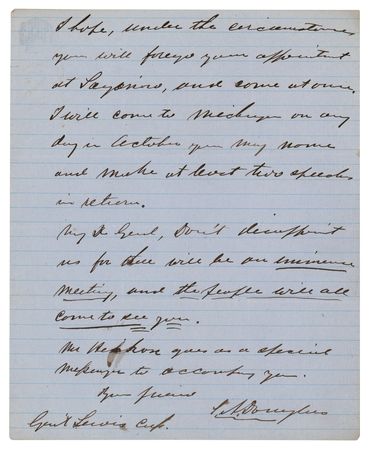 I hope, under the circumstances
you will forego your appointment
at Saginaw, and come at once.
I will come to Michigan on any
day in October you may name
and make at least two speeches
in return.
My D Genl, Don't disappoint
us for there will be an immense
meeting, and the people will all
come to see you.
Mr goes as a special
messenger to accompany you.
Your friend
S. A. Douglas
Genl Lewis Cass.